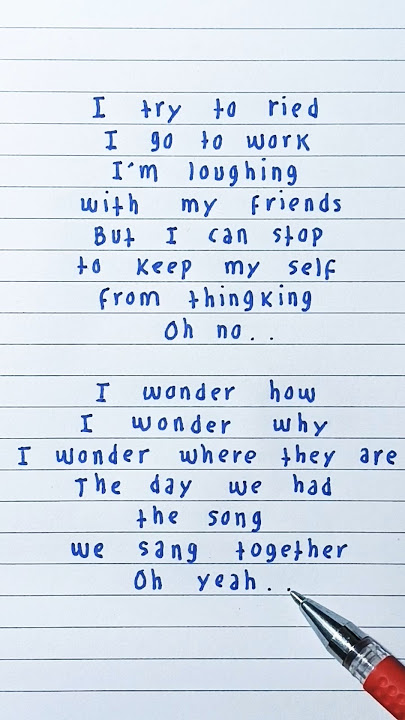 I try to ried
I go to work
I'm loughing
with my friends
But I can stop
to keep my self
from thingking
Oh no..
I wonder how
I wonder why
I wonder where they are
The day we had
the song
we sang together
Oh yeah..